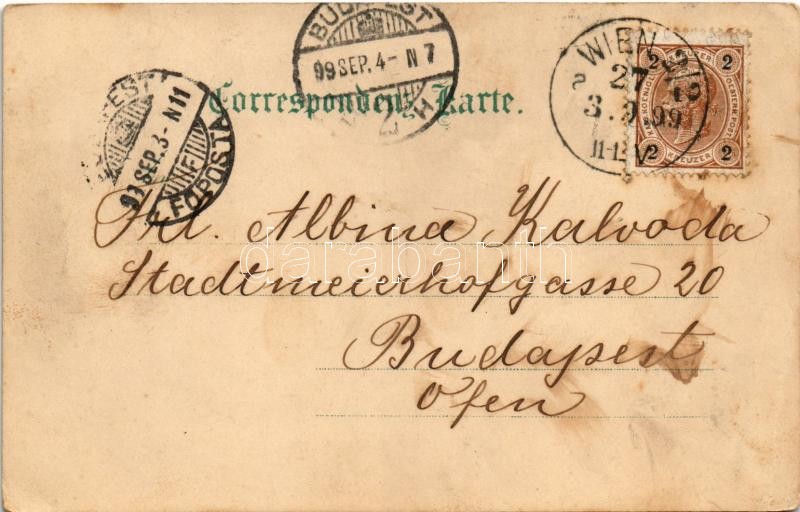 BUDAPEST
99 SEP. 4 - N 7
WIEN
27
3. 9. 99
2 2
KREUZER
2 2
Correspondenz-Karte.
99 SEP. 3 - N 11
FŐPOSTA
Frl. Albina Kalvoda
darabanth
Stadtmeierhofgasse 20
Budapest
Ofen